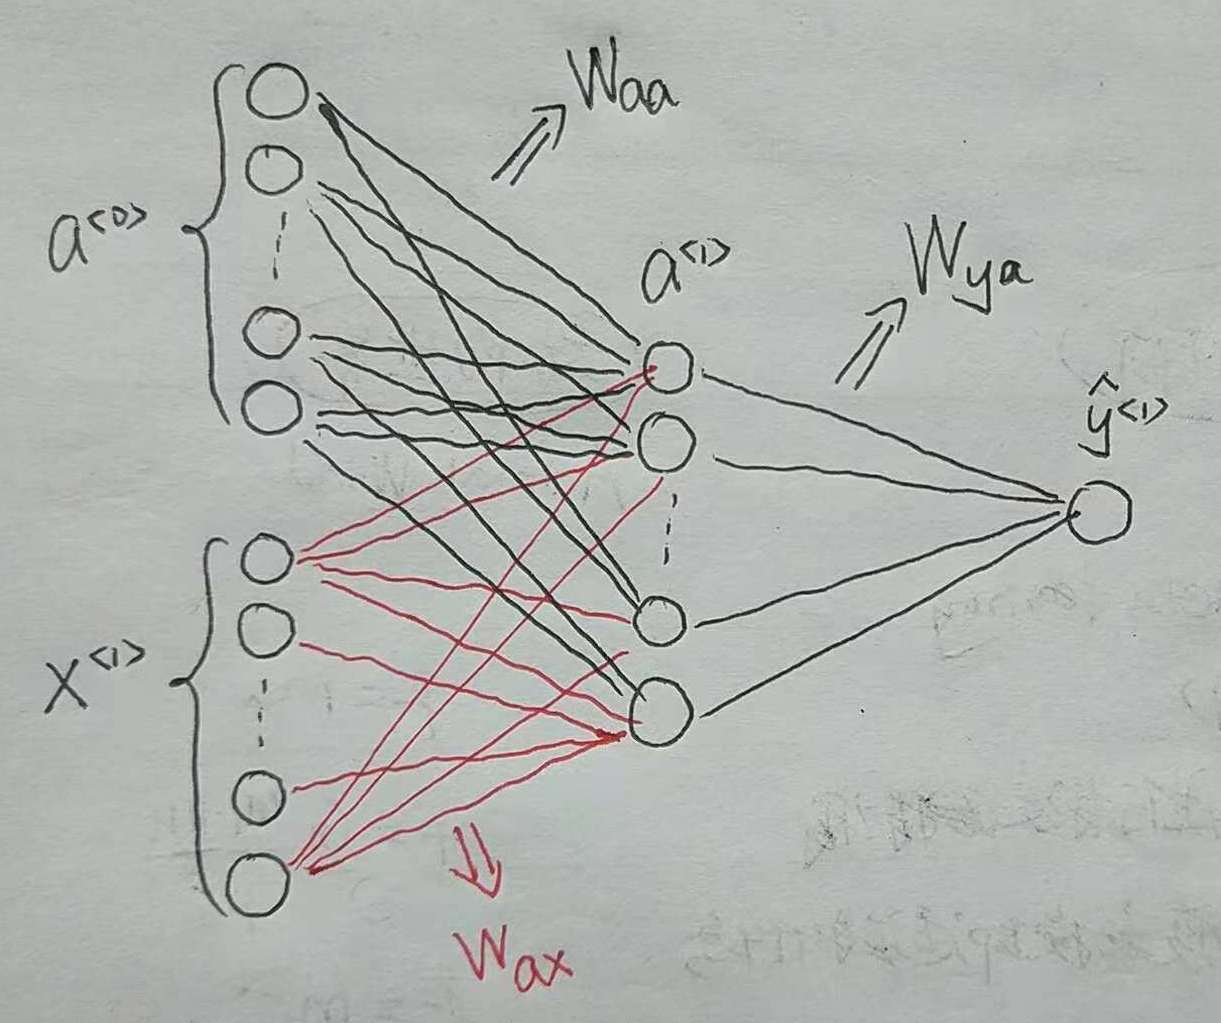 Waa
a<0>
a<1>
Wya
ŷ<1>
x<1>
Wax